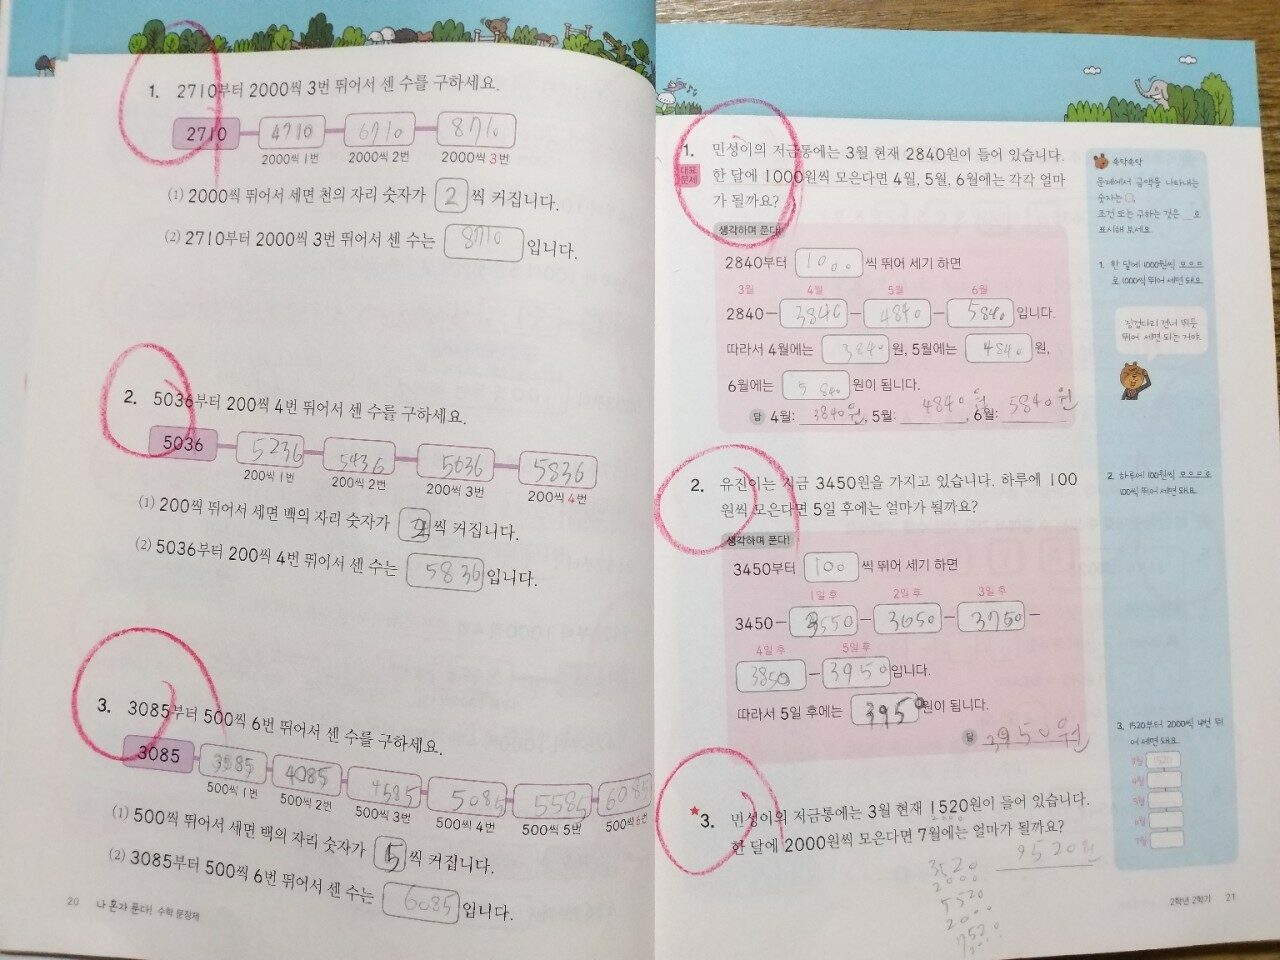 1. 2710부터 2000씩 3번 뛰어서 센 수를 구하세요.
2710 4710 6710 8710
2000씩 1번 2000씩 2번 2000씩 3번
(1) 2000씩 뛰어서 세면 천의 자리 숫자가 2 씩 커집니다.
(2) 2710부터 2000씩 3번 뛰어서 센 수는 8710 입니다.
2. 5036부터 200씩 4번 뛰어서 센 수를 구하세요.
5036 5236 5436 5636 5836
200씩 1번 200씩 2번 200씩 3번 200씩 4번
(1) 200씩 뛰어서 세면 백의 자리 숫자가 2 씩 커집니다.
(2) 5036부터 200씩 4번 뛰어서 센 수는 5836 입니다.
3. 3085부터 500씩 6번 뛰어서 센 수를 구하세요.
3085 3585 4085 4585 5085 5585 6085
500씩 1번 500씩 2번 500씩 3번 500씩 4번 500씩 5번 500씩 6번
(1) 500씩 뛰어서 세면 백의 자리 숫자가 5 씩 커집니다.
(2) 3085부터 500씩 6번 뛰어서 센 수는 6085 입니다.
20 나 혼자 푼다! 수학 문장제
1. 민성이의 저금통에는 3월 현재 2840원이 들어 있습니다.
대표 문제 한 달에 1000원씩 모은다면 4월, 5월, 6월에는 각각 얼마
가 될까요?
생각하며 푼다!
2840부터 1000 씩 뛰어 세기 하면
3월 4월 5월 6월
2840－3840－4840－5840 입니다.
따라서 4월에는 3840 원, 5월에는 4840 원,
6월에는 5840 원이 됩니다.
답 4월: 3840원, 5월: 4840원, 6월: 5840원
2. 유진이는 지금 3450원을 가지고 있습니다. 하루에 100
원씩 모은다면 5일 후에는 얼마가 될까요?
생각하며 푼다!
3450부터 100 씩 뛰어 세기 하면
1일 후 2일 후 3일 후
3450－3550－3650－3750－
4일 후 5일 후
3850－3950입니다.
따라서 5일 후에는 3950원이 됩니다.
답 3950원
★3. 민성이의 저금통에는 3월 현재 1520원이 들어 있습니다.
한 달에 2000원씩 모은다면 7월에는 얼마가 될까요?
2000
3520
9520원
2000
5520
2000
7520
속닥속닥
문제에서 금액을 나타내는
숫자는 ○,
조건 또는 구하는 것은 __로
표시해 보세요.
1. 한 달에 1000원씩 모으므
로 1000씩 뛰어 세면 돼요.
징검다리 건너 뛰듯
뛰어 세면 되는 거야.
2. 하루에 100원씩 모으므로
100씩 뛰어 세면 돼요.
3. 1520부터 2000씩 4번 뛰
어 세면 돼요.
3월 1520
4월
5월
6월
7월
2학년 2학기 21